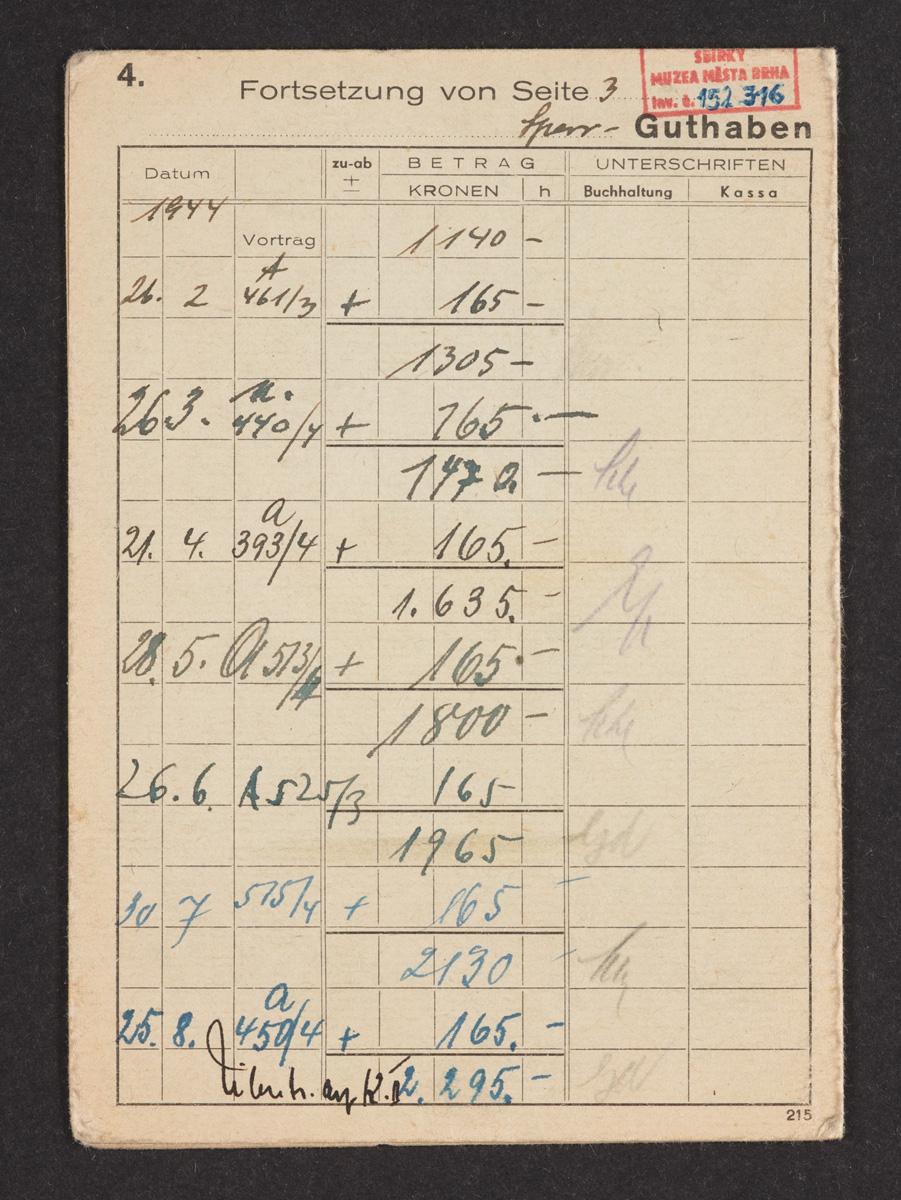 4.
SBÍRKY
MUZEA MĚSTA BRNA
Inv. č. 152 316
Fortsetzung von Seite 3
Sperr- Guthaben
Datum zu-ab + BETRAG UNTERSCHRIFTEN
KRONEN h Buchhaltung Kassa
1944
Vortrag 1140 -
A
26. 2 461/3 + 165 -
1305 -
a.
26. 3. 440/4 + 165.-
1470. -
a
21. 4. 393/4 + 165. -
1.635. -
28. 5. A 513/4 + 165 -
1800 -
26. 6. A 525/3 165
1965
30 7 515/4 + 165 -
2130 -
a
25. 8. 450/4 + 165. -
Übertr. auf K. II 2.295. -
215